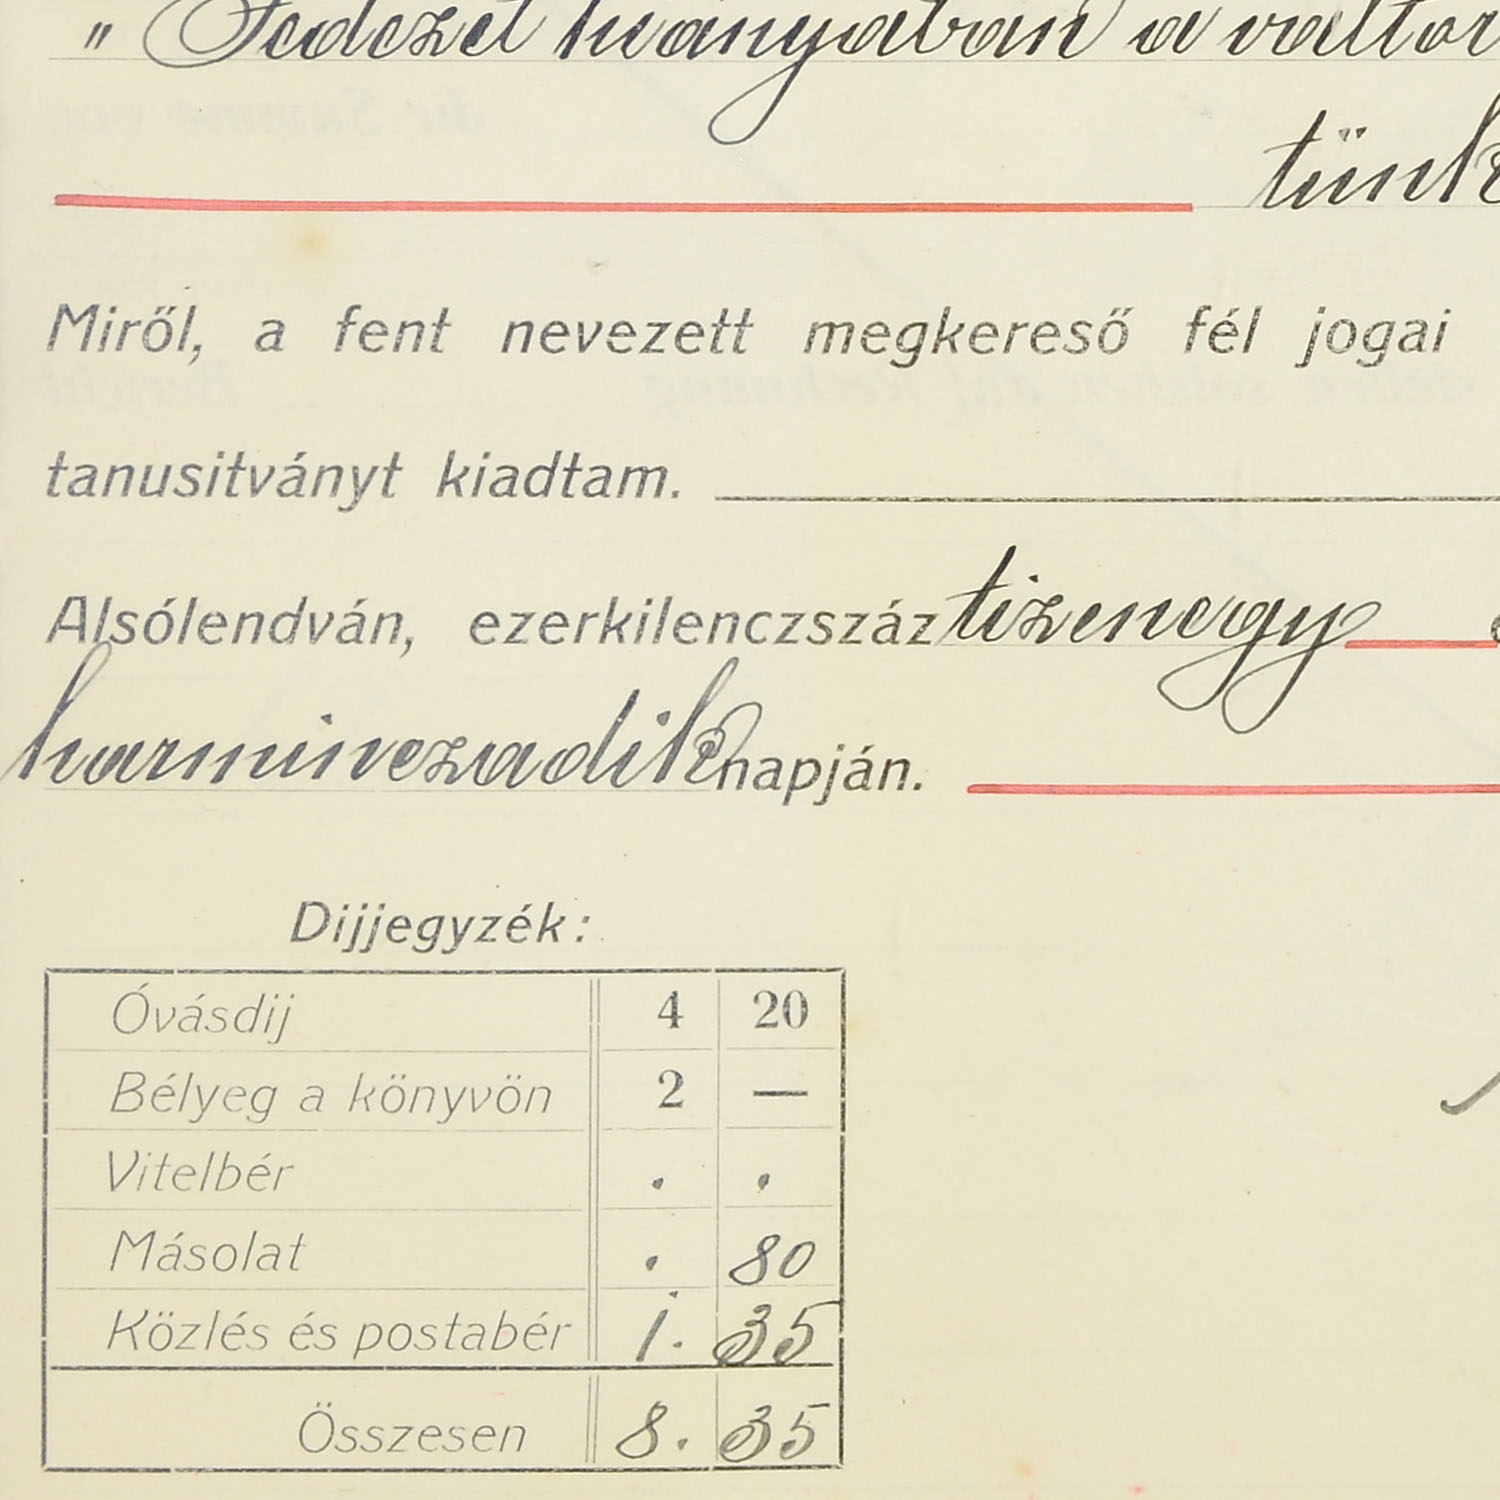 " Fedezet hiányában a
tünk
Miről, a fent nevezett megkereső fél jogai
tanusitványt kiadtam.
Alsólendván, ezerkilenczszáz tizenegy
harminczadik napján.
Dijjegyzék:
Óvásdij 4 20
Bélyeg a könyvön 2 —
Vitelbér . .
Másolat . 80
Közlés és postabér 1. 35
Összesen 8. 35